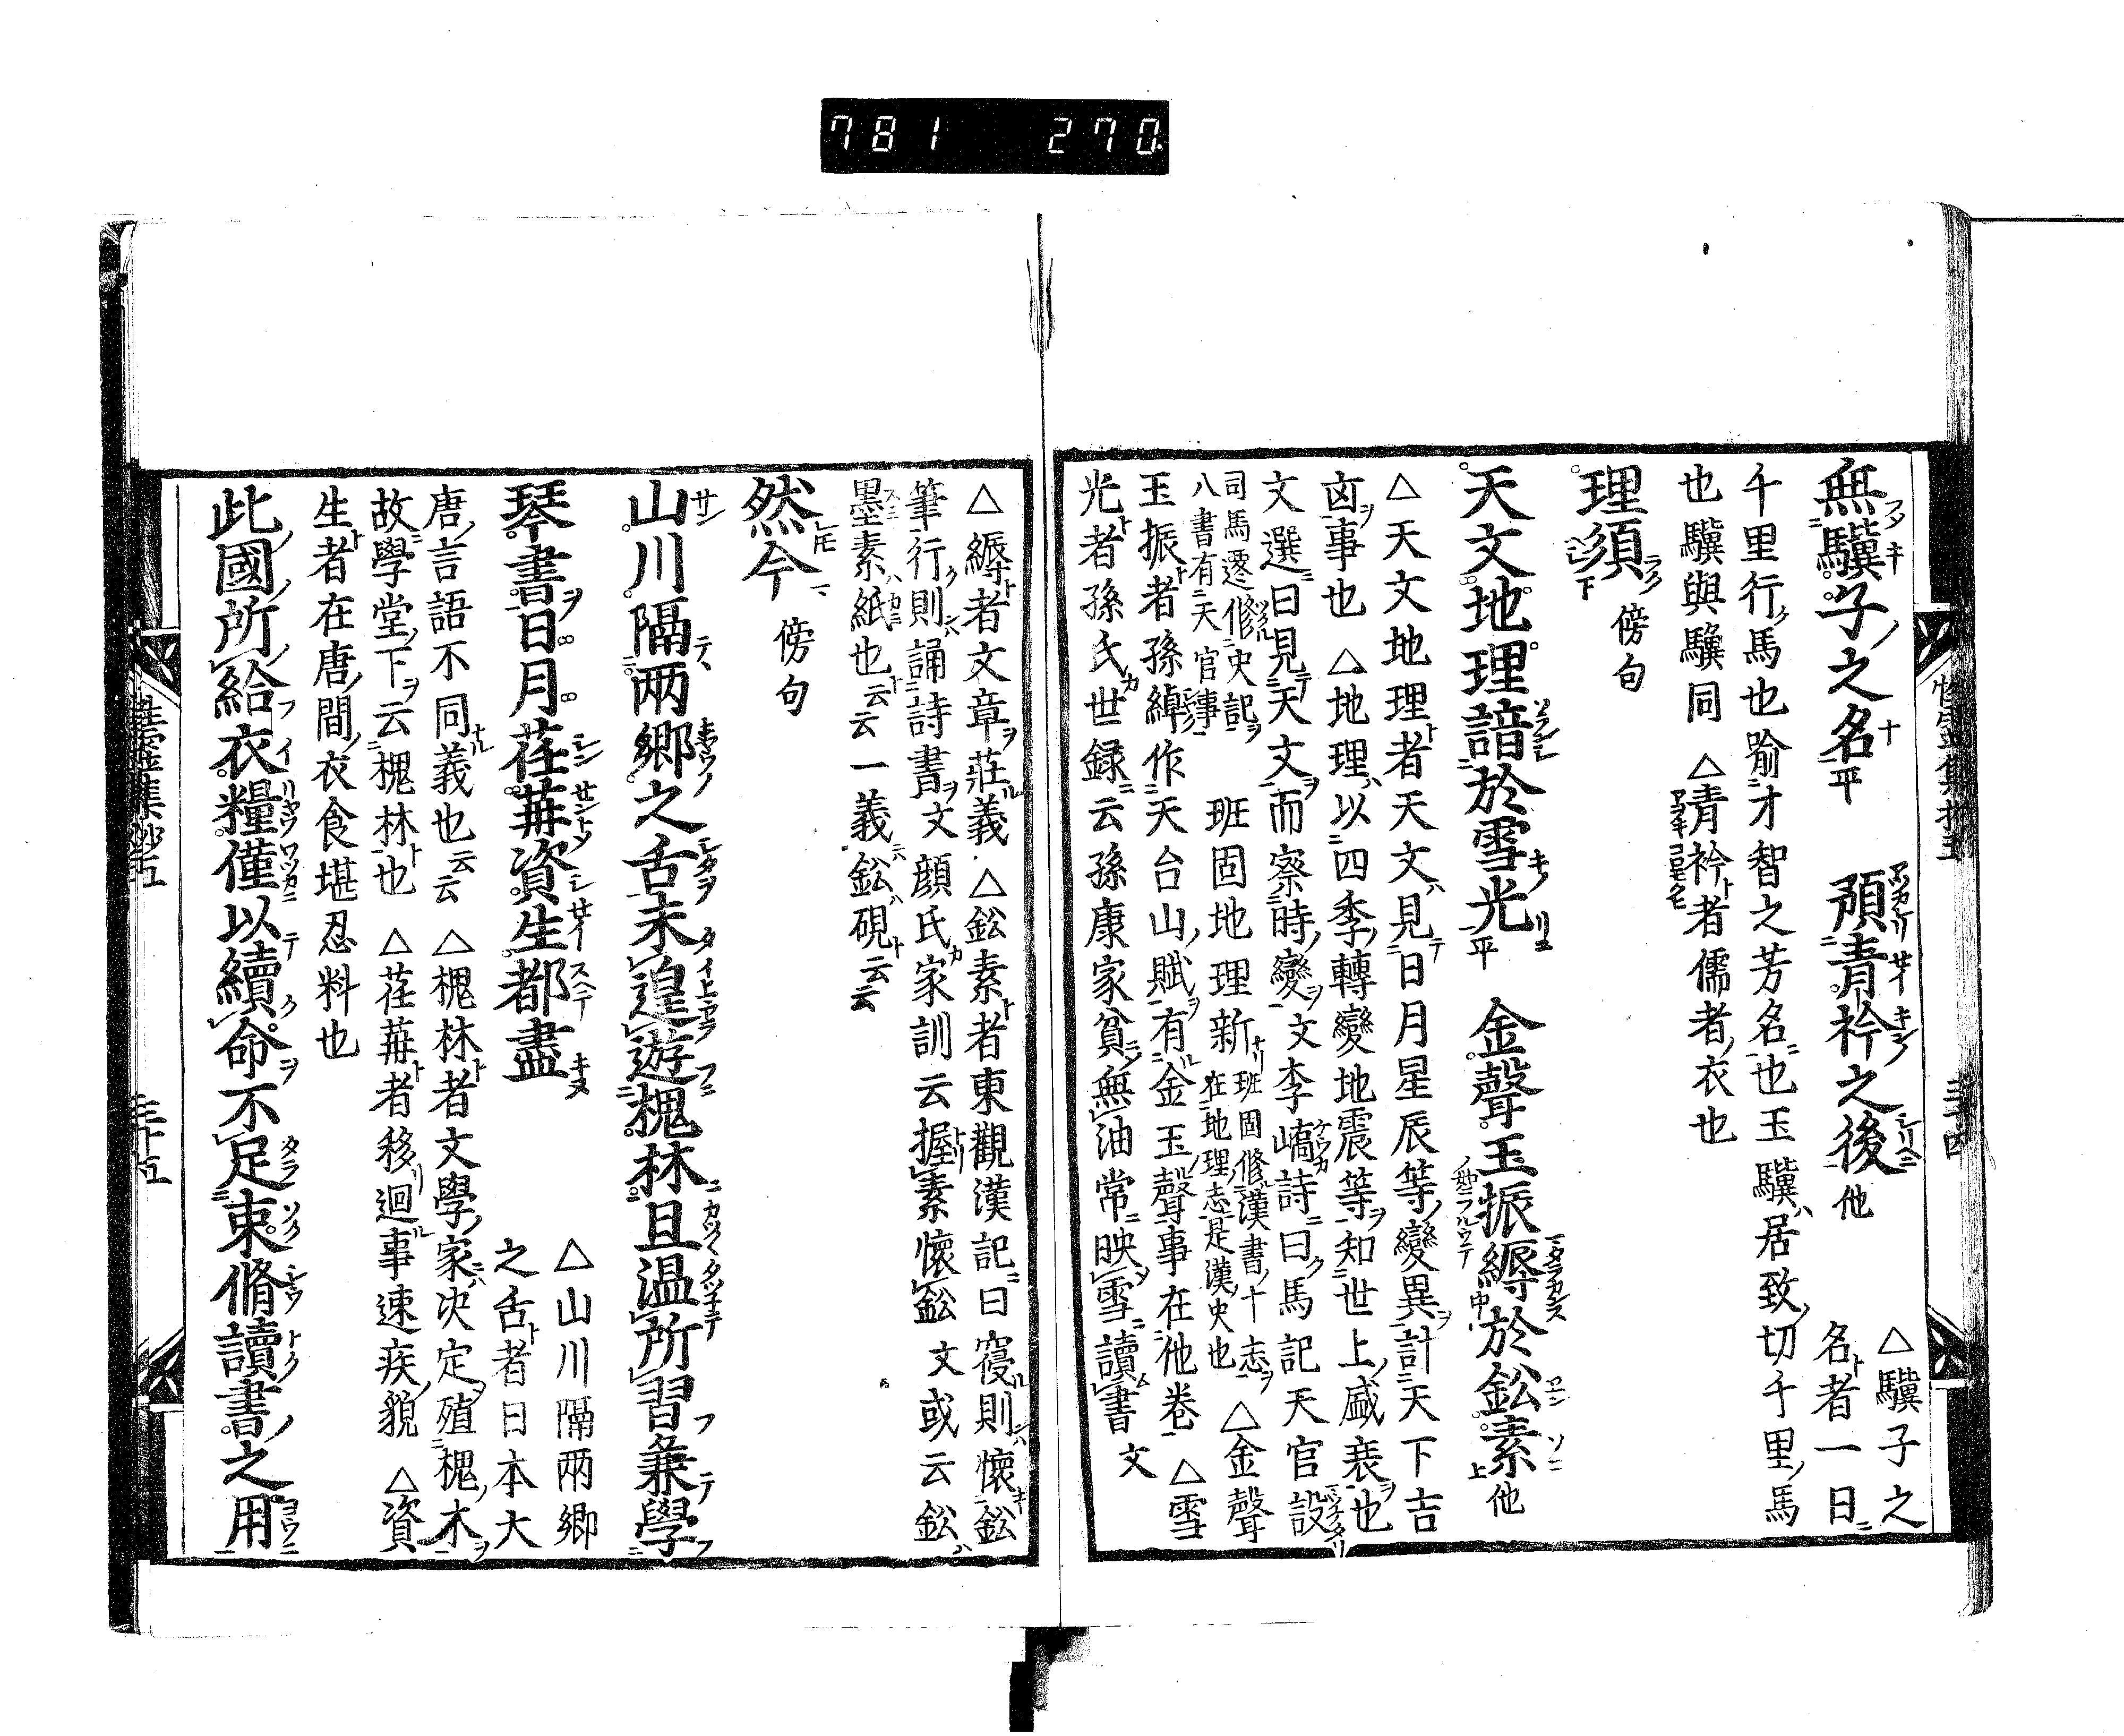 781 270
無驥子之名平 預青衿之後他 △驥子之
名者一日
千里行馬也喻才智之芳名也玉驥居致切千里馬
也驥與驥同 △青衿者儒者衣也
理須 傍句
天文地理諳於雪光平 金聲玉振縟於鈆素他
△天文地理者天文見日月星辰等變異計天下吉
凶事也 △地理以四季轉變地震等知世上盛衰也
文選曰見天文而察時變文李嶠詩曰馬記天官設
司馬遷修史記
八書有天官事 班固地理新 班固修漢書十志
在地理志是漢史也 △金聲
玉振者孫綽作天台山賦有金玉聲事在他卷 △雪
光者孫氏世録云孫康家貧無油常映雪讀書文
△縟者文章莊義 △鈆素者東觀漢記曰寢則懷鈆
筆行則誦詩書文顔氏家訓云握素懷鈆文或云鈆
墨素紙也云云一義鈆硯云云
然今 傍句
山川隔兩郷之舌未遑遊槐林且温所習兼學
琴書日月荏苒資生都盡 △山川隔兩郷
之舌者日本大
唐言語不同義也云云 △槐林者文學家决定殖槐木
故學堂下云槐林也 △荏苒者移迴事速疾貌 △資
生者在唐間衣食堪忍料也
此國所給衣糧僅以續命不足束脩讀書之用